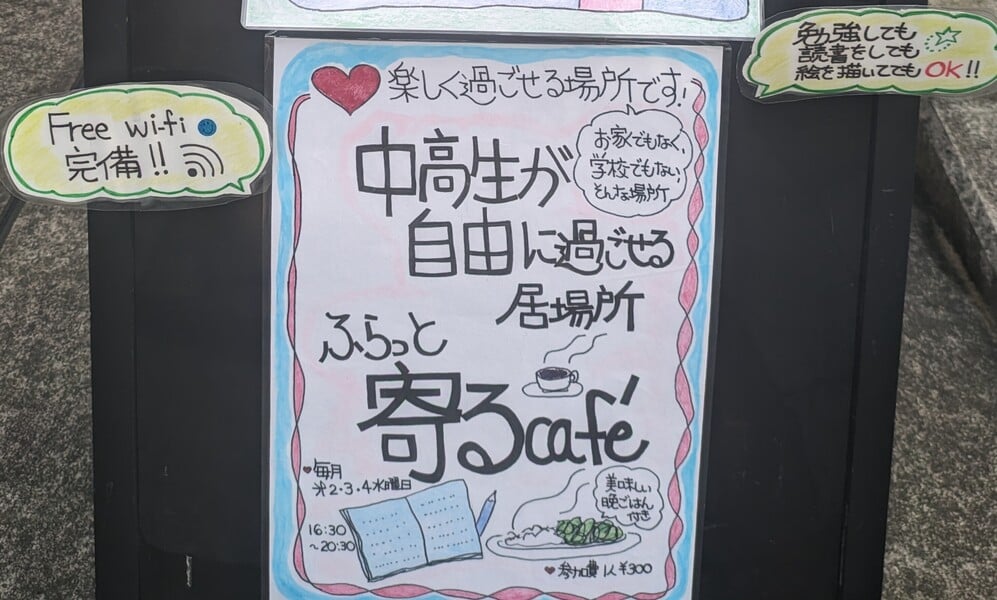 Free wi-fi
完備!!
勉強しても
読書をしても
絵を描いててもOK!!
楽しく過ごせる場所です!
お家でもなく、
学校でもない、
そんな場所
中高生が
自由に過ごせる
居場所
ふらっと
寄るcafé
毎月
※2・3・4水曜日
16:30
~20:30
美味しい
晩ごはん
付き
参加費 1人 ¥300